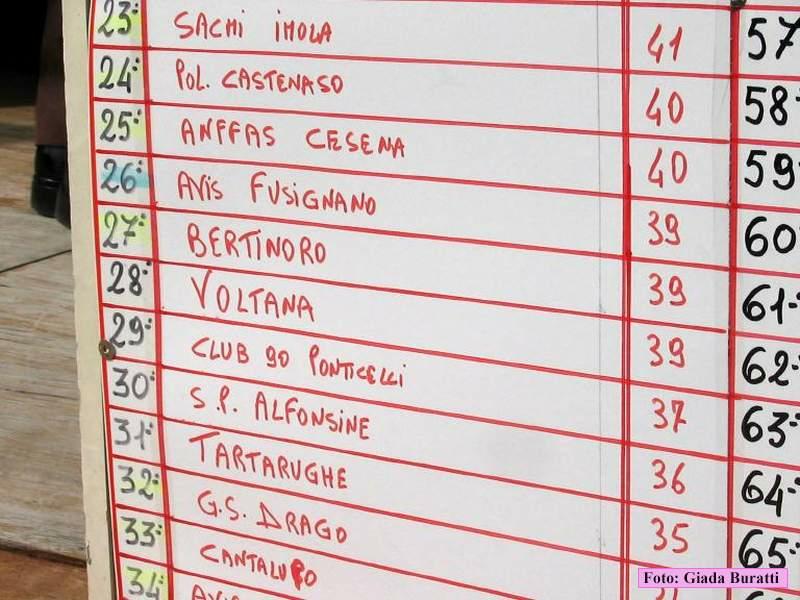 23° SACMI IMOLA 41 57
24° POL. CASTENASO 40 58
25° ANFFAS CESENA 40 59
26° AVIS FUSIGNANO 39 60
27° BERTINORO 39 61
28° VOLTANA 39 62
29° CLUB 90 PONTICELLI 37 63
30° S.P. ALFONSINE 36 64
31° TARTARUGHE 35 65
32° G.S. DRAGO
33° CANTALUPO
34°
Foto: Giada Buratti